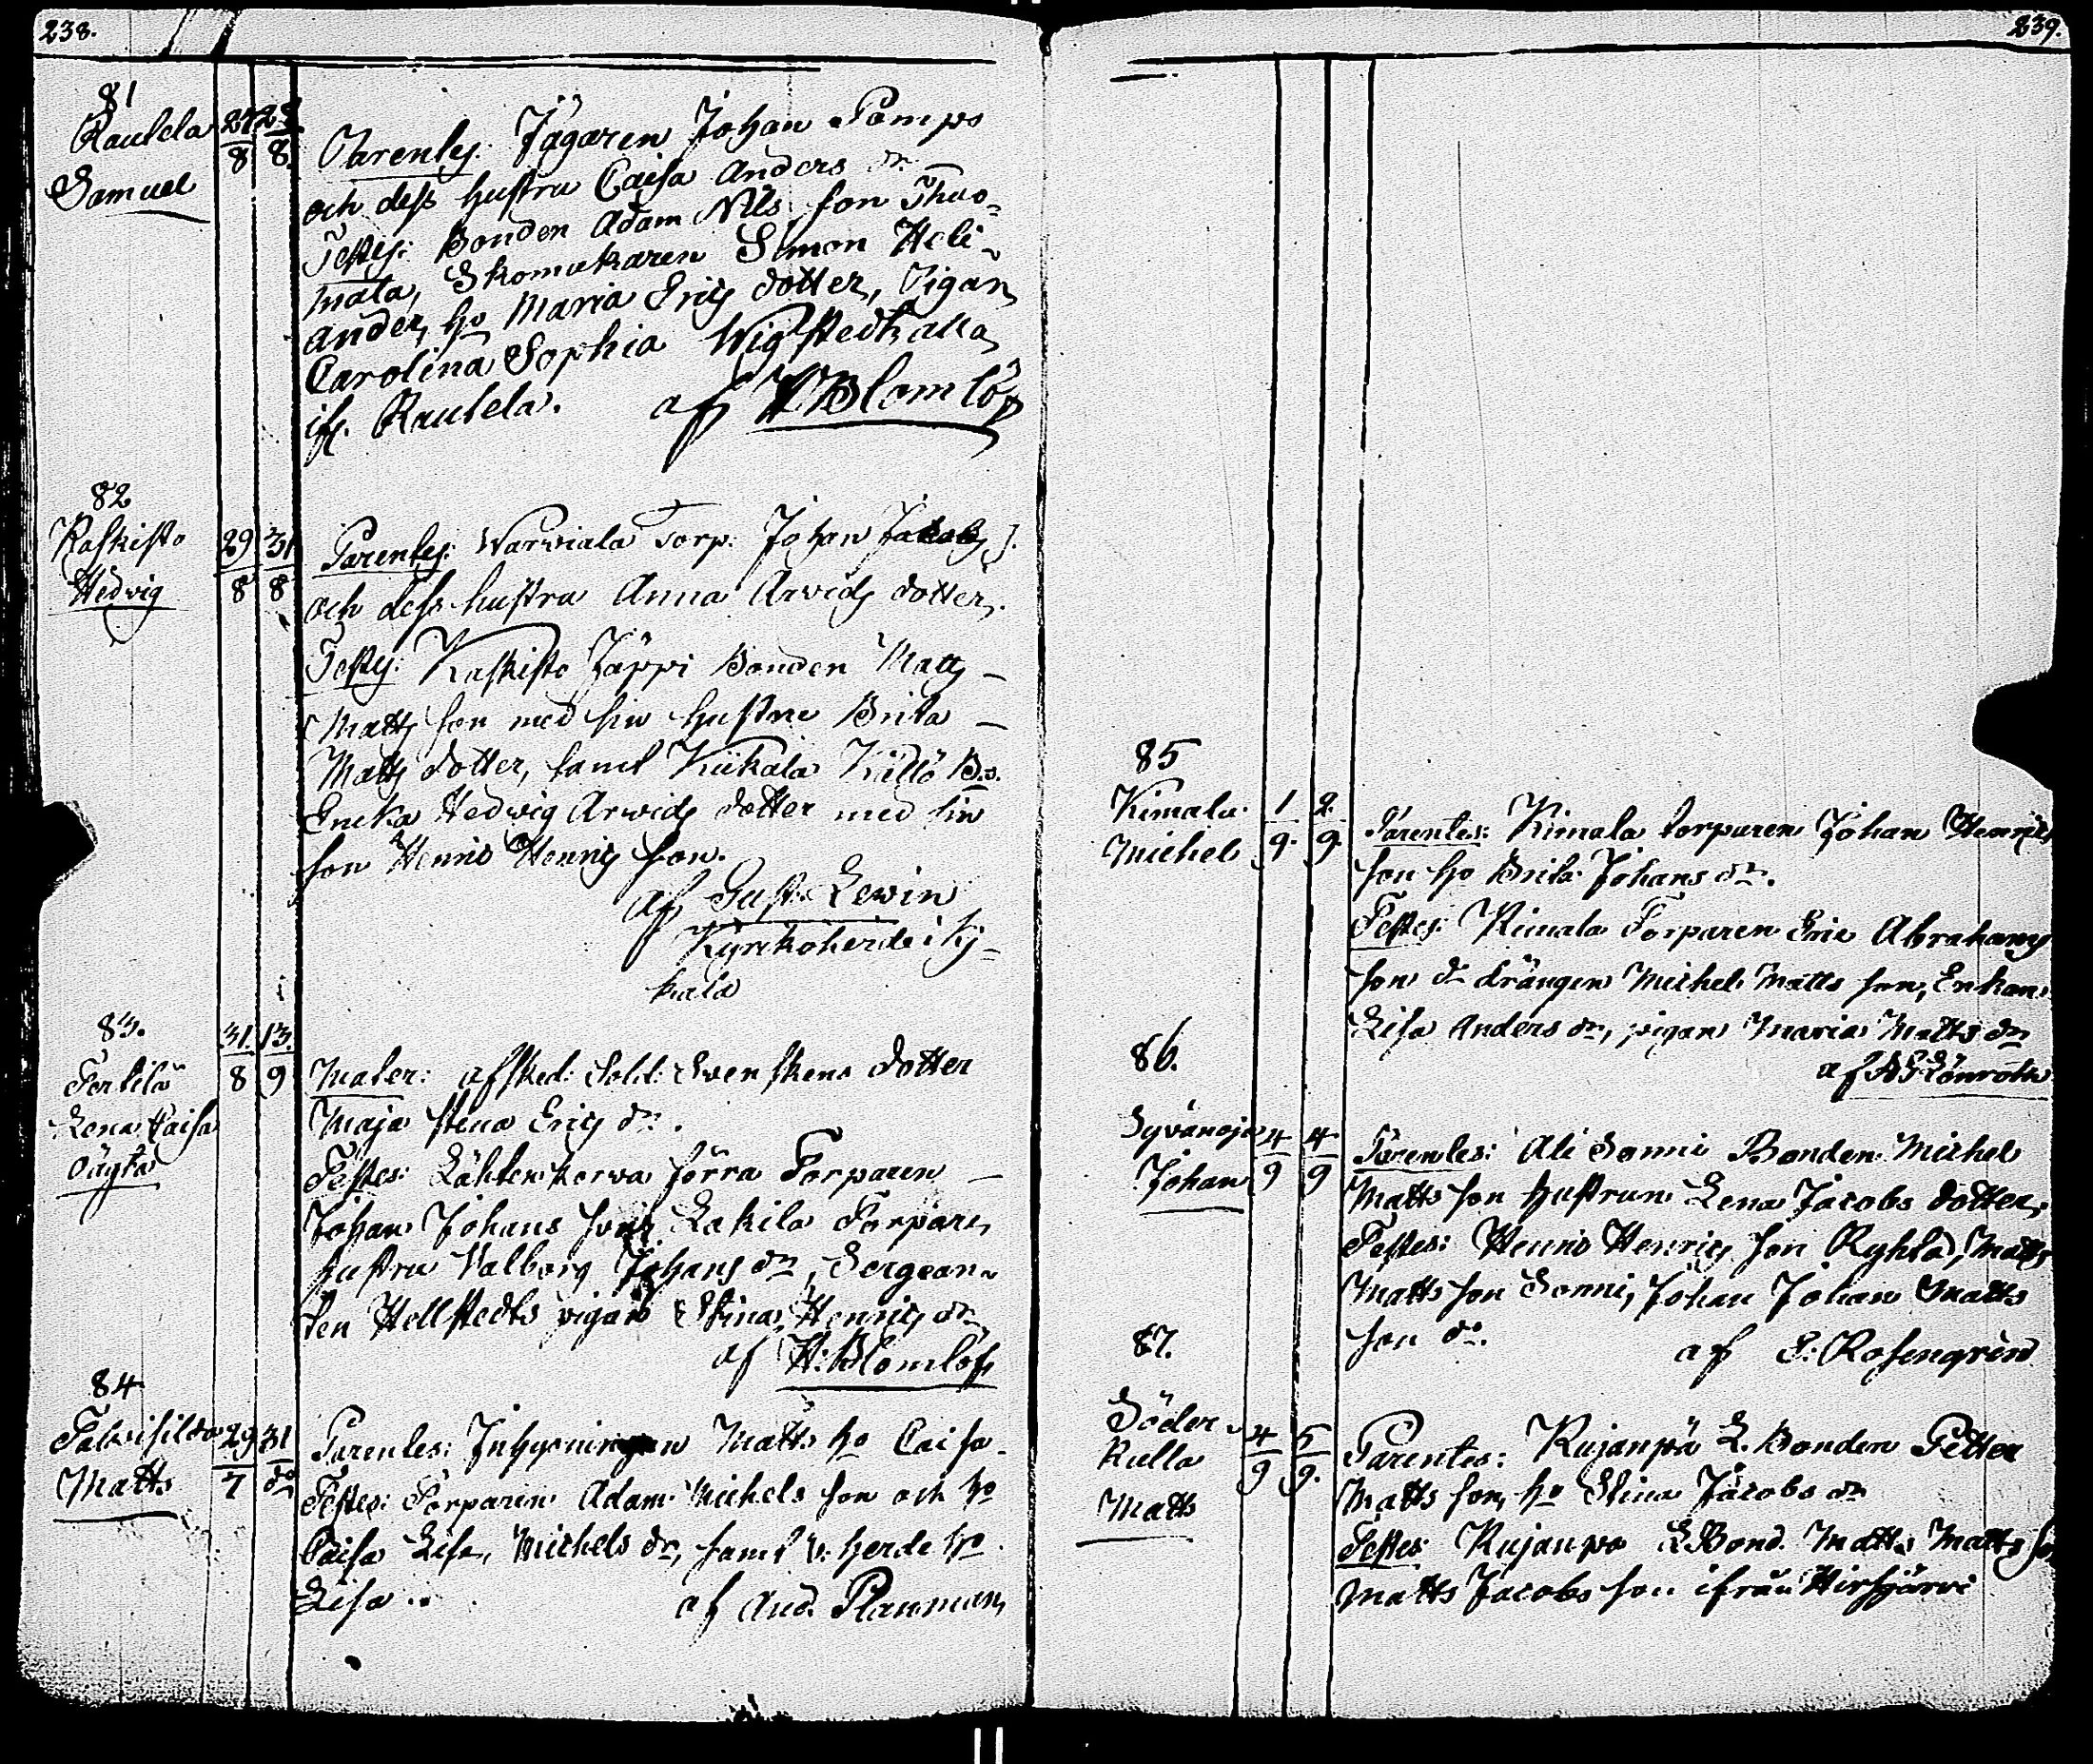 238.
81
Rautela 27/8 28/8.
Samuel
Parentes: Jägaren Johan Pamps
och dess hustru Caisa Anders dr.
Testes: Bonden Adam Nils son Thuo-
mala, Skomakaren Simon Heli-
ander, ho Maria Erics dotter, Pigan
Carolina Sophia Wigstedt alla
ifr. Rautela. af HBlomlöf
82
Kaskisto 29/8 31/8
Hedvig
Parentes: Warviala Torp: Johan Jacobs s.
och dess hustru Anna Arvids dotter.
Testes: Kaskisto Jäppi Bonden Matts
Matts son med sin hustru Brita
Matts dotter, samt Kiikala Källö
Erica Hedvig Arvids dotter med sin
son Henric Henrics son.
af Gust. Lewin
Kyrkoherde i Ky-
kala
83.
31./8 13./9
Lena Caisa
Oägta
Mater: afsked: Sold: Svenskens dotter
Maja Stina Erics dr.
Testes: Lähtenkorva förra Torparen
Johan Johans son, Lakila Torpare
hustru Valborg Johans dr, Sergean-
ten Hellstedts pigan Stina Henrics dr
af H: Blomlöf
84
29/7 31/do
Matts
Parentes: Inhysningen Matts ho Caisa.
Testes: Torparen Adam Michels son och ho
Caisa Lisa, Michels dr, samt herde ho
Lisa.. af And. Planman
239.
85
Kimala 1/9. 2./9.
Michel
Parentes: Kimala torparen Johan Henrics
son ho Brita Johans dr.
Testes: Kimala Torparen Eric Abrahams
son do drängen Michel Matts son, Enkan
Lisa Anders dr, pigan Maria Matts dr
af Lönroth
86.
Syvänoja 4/9 4/9
Johan
Parentes: Ali Sonni Bonden Michel
Matts son hustrun Lena Jacobs dotter.
Testes: Henric Henrics son Ryhtä, Matts
Matts son Sonni, Johan Johan Matts
son do. af E: Rosengrén
87.
Söder-
kulla 4/9 5/9.
Matts
Parentes: Kujanpä L. Bonden Petter
Matts son, ho Stina Jacobs dr
Testes: Kujanpä LBond. Matts Matts son
Matts Jacobs son ifrån Hirsjärvi